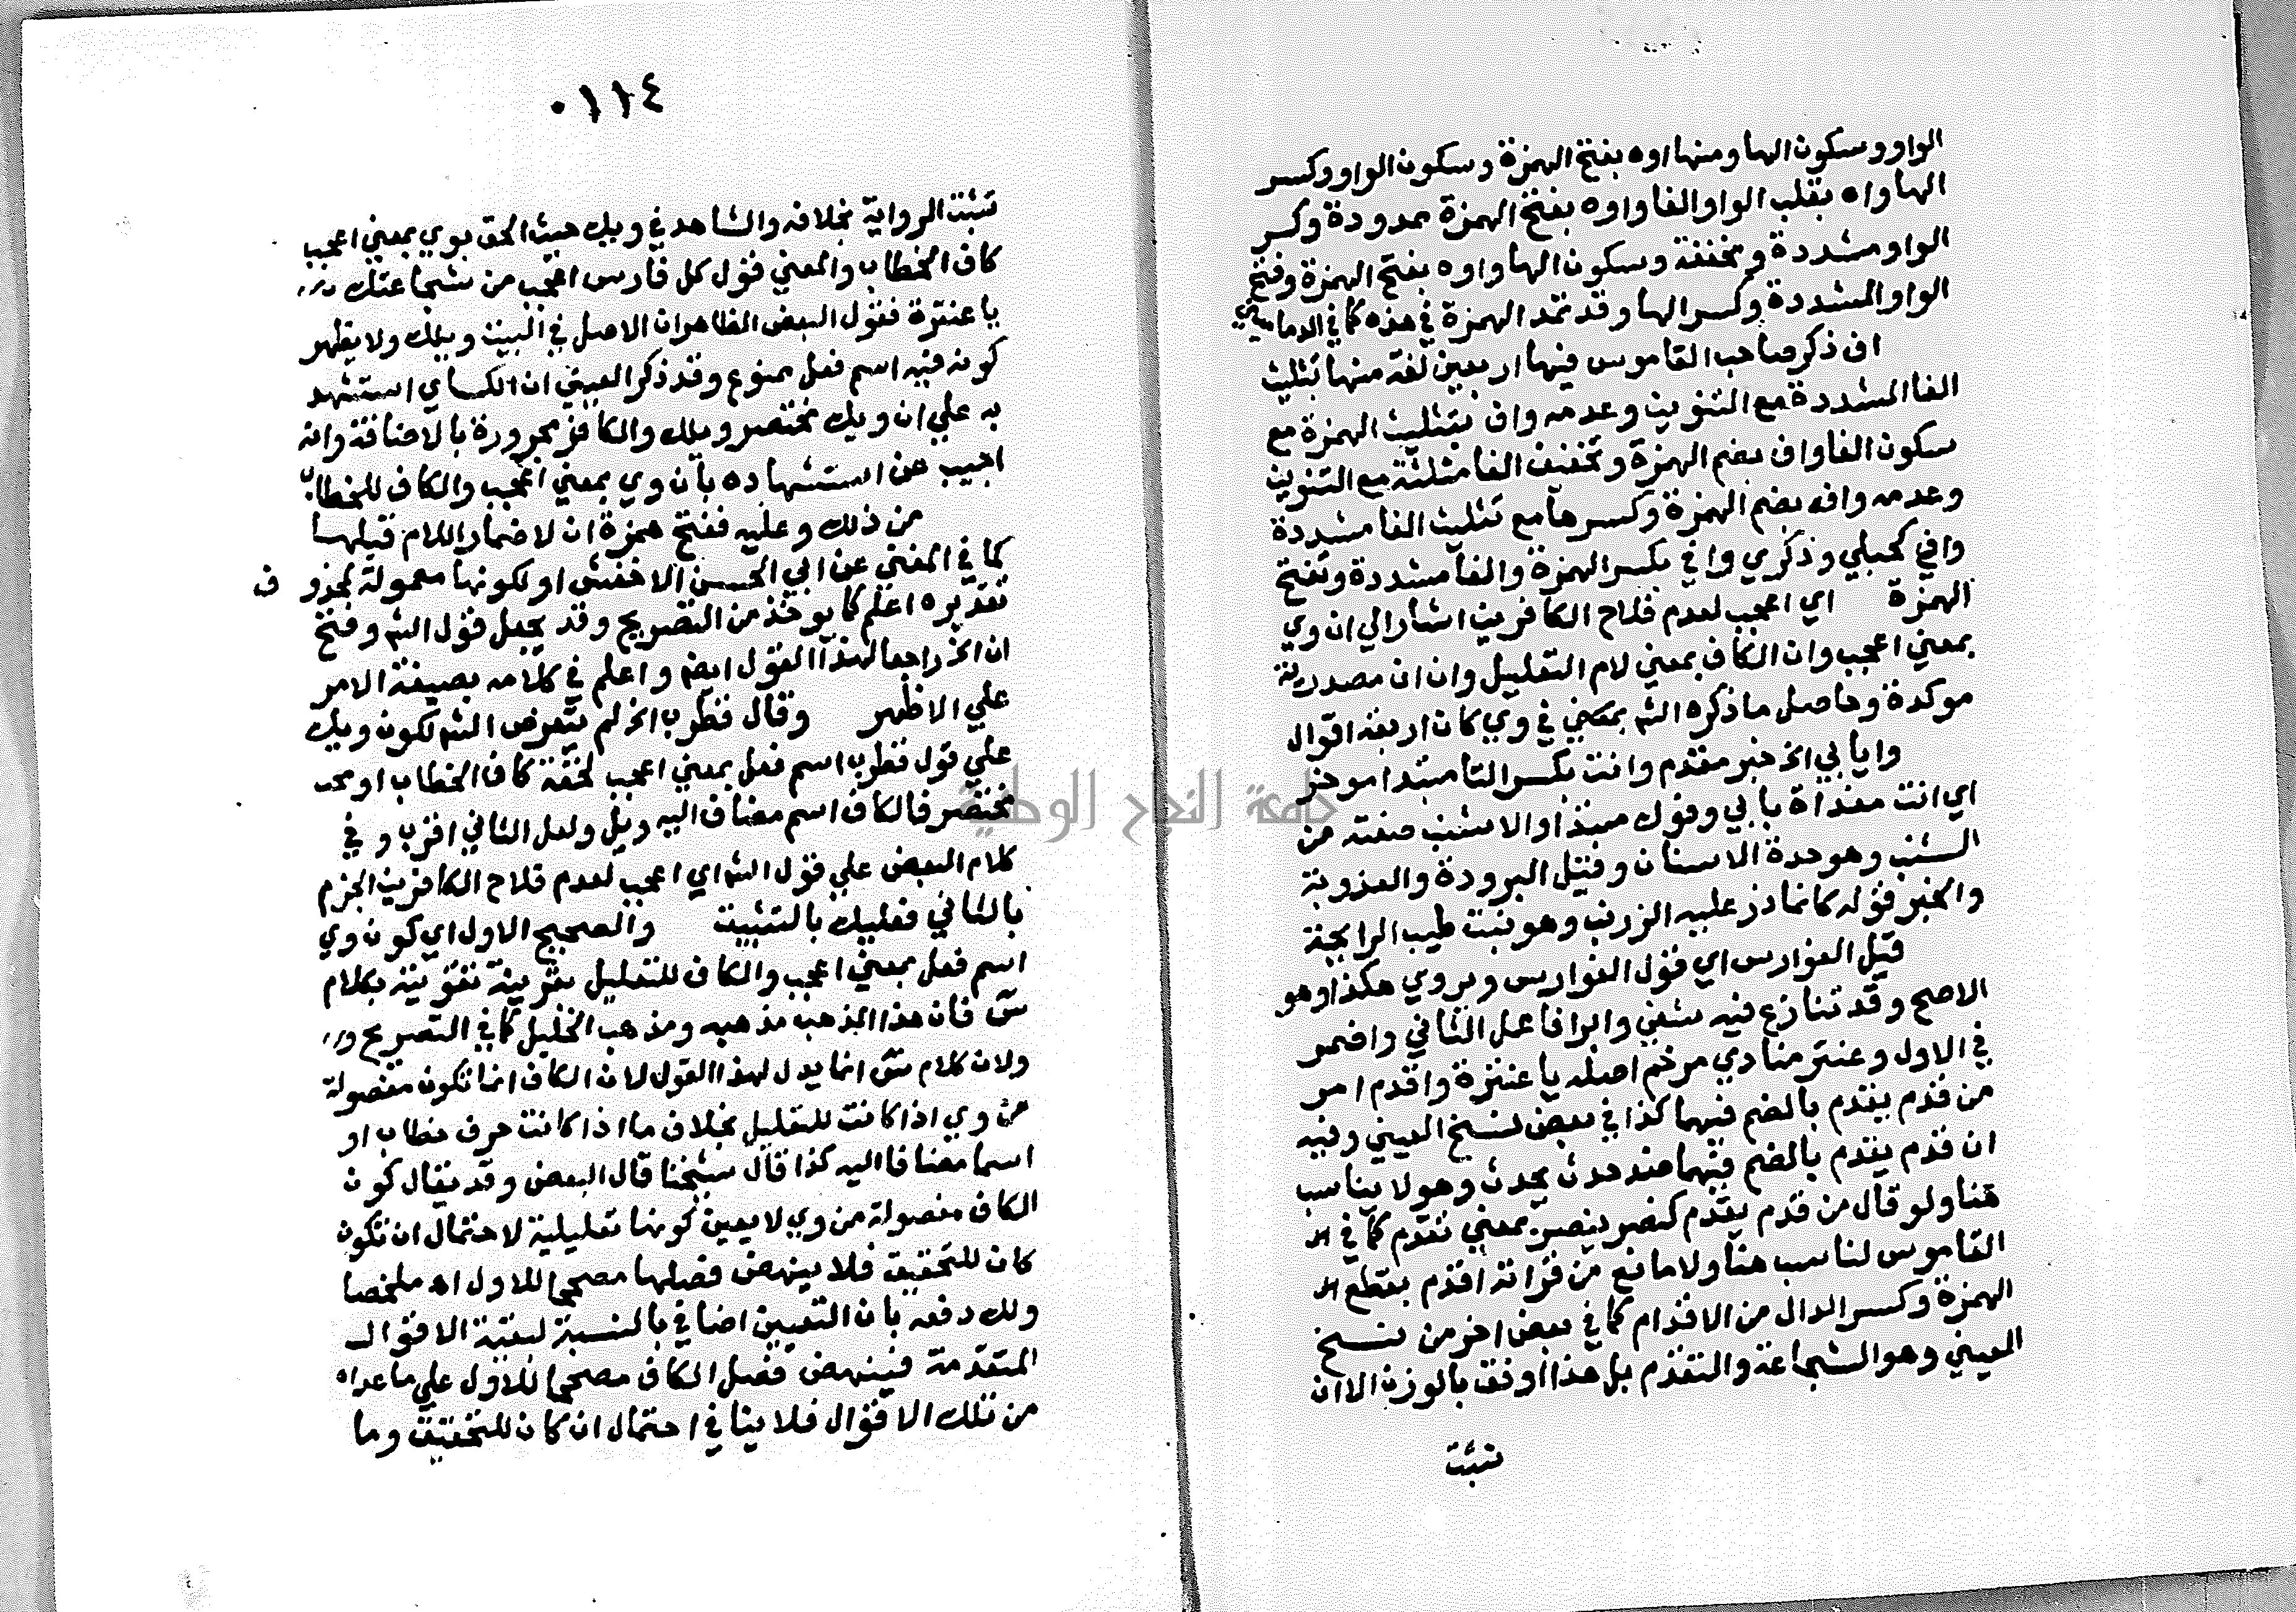 الواو وسكون الها ومنها اوه بفتح الهمزة وسكون الواو وكسر
الها واه بقلب الواو الفا واوه بفتح الهمزة ممدودة وكسر
الواو مشددة ومخففة وسكون الها واوه بفتح الهمزة وفتح
الواو المشددة وكسر الها وقد تمد الهمزة في هذه كما في الدماميني
اف ذكر صاحب القاموس فيها اربعين لغة منها تثليث
الفا المشددة مع التنوين وعدمه واف بتثليث الهمزة مع
سكون الفا واف بضم الهمزة وتخفيف الفا مثلثة مع التنوين
وعدمه وافه بضم الهمزة وكسرها مع تثليث الفا مشددة
وافي كحبلي وذكري وافي بكسر الهمزة والفا مشددة وتفتح
الهمزة اي اعجب لعدم فلاح الكافرين اشار الي ان وي
بمعني اعجب وان الكاف بمعني لام التعليل وان ان مصدرية
موكدة وحاصل ما ذكره الشم بمعني في وي كان اربعة اقوال
وابابي الخ خبر مقدم وانت بكسر التا مبتدا موخر
اي انت مفداة بابي وفوك مبتدا والاشنب صفته من
الشنب وهو حدة الاسنان وقيل البرودة والعذوبة
والخبر قوله كانما ذر عليه الزرنب وهو نبت طيب الرايحة
قيل الفوارس اي قول الفوارس ويروي هكذا وهو
الاصح وقد تنازع فيه شفي وابرا فاعمل الثاني واضمر
في الاول وعنتر منادي مرخم اصله يا عنترة واقدم امر
من قدم يقدم بالضم فيهما كذا في بعض نسخ العيني وفيه
ان قدم يقدم بالضم فيهما ضد حدث يحدث وهو لا يناسب
هنا ولو قال من قدم يقدم كنصر ينصر بمعني تقدم كما في
القاموس لناسب هنا ولا مانع من قراته اقدم بقطع
الهمزة وكسر الدال من الاقدام كما في بعض اخر من نسخ
العيني وهو الشجاعة والتقدم بل هذا اوفق بالوزن الا ان
تثبت
٠١١٤
تثبت الرواية بخلافه والشاهد في ويك حيث الحق بوي بمعني اعجب
كاف الخطاب والمعني قول كل فارس اعجب من شجاعتك
يا عنترة فقول البعض الظاهر ان الاصل في البيت ويلك ولا يظهر
كونه فيه اسم فعل ممنوع وقد ذكر العيني ان الكساي استشهد
به علي ان ويك مختصر ويلك والكاف مجرورة بالاضافة وانه
اجيب عن استشهاده بان وي بمعني اعجب والكاف للخطاب
من ذلك وعليه ففتح همزة ان لاضمار اللام قبلها
كما في المغني عن ابي الحسن الاخفش او لكونها معمولة لمحذوف
تقديره اعلم كما يوخذ من التصريح وقد يجعل قول الشم وفتح
ان الخ راجعا لهذا القول ايضم واعلم في كلامه بصيغة الامر
علي الاظهر وقال قطرب الخ لم يتعرض الشم لكون ويك
علي قول قطرب اسم فعل بمعني اعجب لحقه كاف الخطاب او
مختصر فالكاف اسم مضاف اليه ويل ولعل الثاني اقرب وفي
كلام البعض علي قول الشم اي اعجب لعدم فلاح الكافرين الجزم
بالثاني فعليك بالتثبيت والصحيح الاول اي كون وي
اسم فعل بمعني اعجب والكاف للتعليل بقرينة تقويته بكلام
س فان هذا المذهب مذهبه ومذهب الخليل كما في التصريح
ولان كلام س انما يدل لهذا القول لان الكاف انما تكون مفصولة
من وي اذا كانت للتعليل بخلاف ما اذا كانت حرف خطاب او
اسما مضافا اليه كذا قال شيخنا قال البعض وقد يقال كون
الكاف مفصولة من وي لا يعين كونها تعليلية لاحتمال ان تكون
كان للتحقيق فلا ينهض فصلها مصححا للاول اه ملخصا
ولك دفعه بان التعيين اضافي بالنسبة لبقية الاقوال
المتقدمة فينهض فصل الكاف مصححا للاول علي ماعداه
من تلك الاقوال فلا ينافي احتمال ان كان للتحقيق وما
جامعة النجاح الوطنية